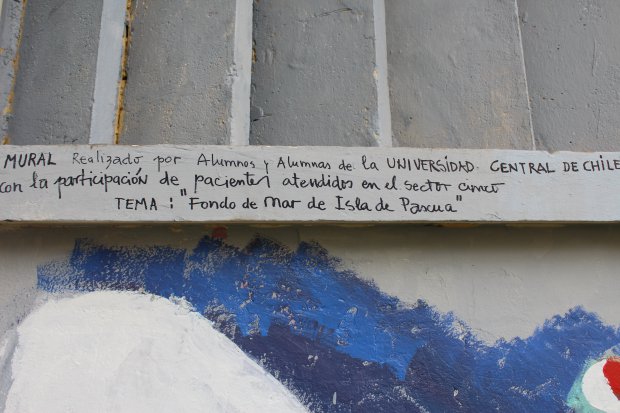 MURAL Realizado por Alumnos y Alumnas de la UNIVERSIDAD CENTRAL DE CHILE
con la participación de pacientes atendidos en el sector cinco
TEMA : "Fondo de Mar de Isla de Pascua"